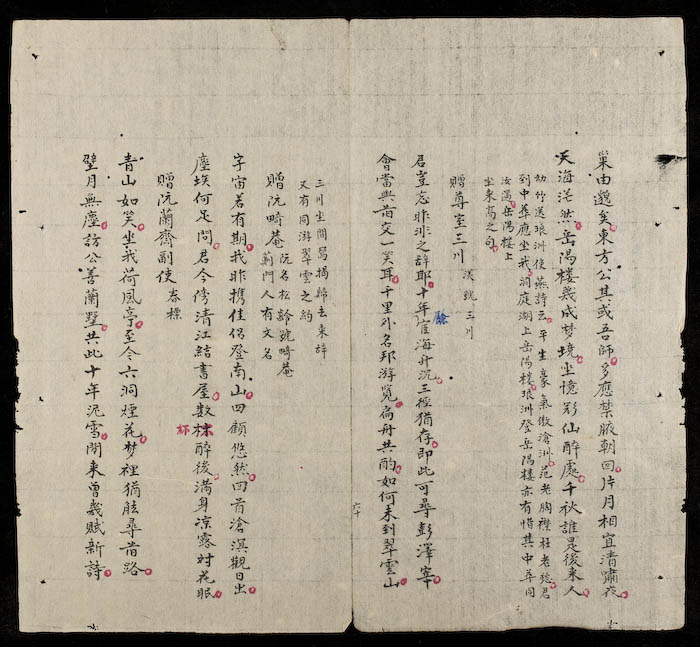 巢由邈矣東方公其或吾師多應禁掖朝回片月相宜清嘯夜
天海茫然岳陽楼幾成梦境坐憶彩仙醉處千秋誰是後来人
幼竹送琅洲使燕詩云平生豪氣傲滄洲范老胸襟杜老愁君
到中葬應坐我洞庭湖上岳陽樓琅洲登岳陽樓亦有惜其中葬同
汝過岳陽樓上
坐来高之句
贈尊室三川 渼號三川
君豈忘昨非之辞耶十年宦海升沉三徑猶存即此可尋彭澤宰
餘
會當與昔交一笑耳千里外名邦游覧扁舟共酌如何未到翠雲山
六十
三川坐間寫揭歸去来辞
又有同游翠雲之約
贈阮畸菴 阮名松齡號畸菴
薊門人有文名
字宙若有期我非携佳侶登南山四顧悠然回首滄溟觀日出
塵埃何足問君今傍清江結書屋数株醉後满身凉露对花眠
杯
贈阮蘭齋副使 春標
青山如笑坐我荷風亭至今六洞煙花梦裡猶能尋昔路
壁月無塵訪公善蘭墅共此十年泥雪閒来曾幾賦新詩